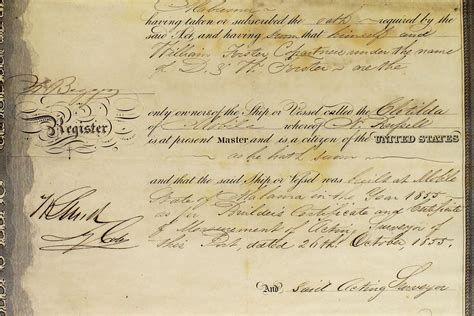 having taken or subscribed the oath required by the
said Act, and having sworn that himself and
William Foster Copartners under the name
of D. & W. Foster - are the
Register
only owners of the Ship or Vessel called the Clotilda
of Mobile whereof
is at present Master and is a citizen of the UNITED STATES
as he hath sworn
and that the said Ship or Vessel was built at Mobile
State of Alabama in the Year 1855
as per Builders Certificate and Certificate
of Measurement of Acting Surveyor of
this Port, dated 26th October, 1855.
And said Acting Surveyor